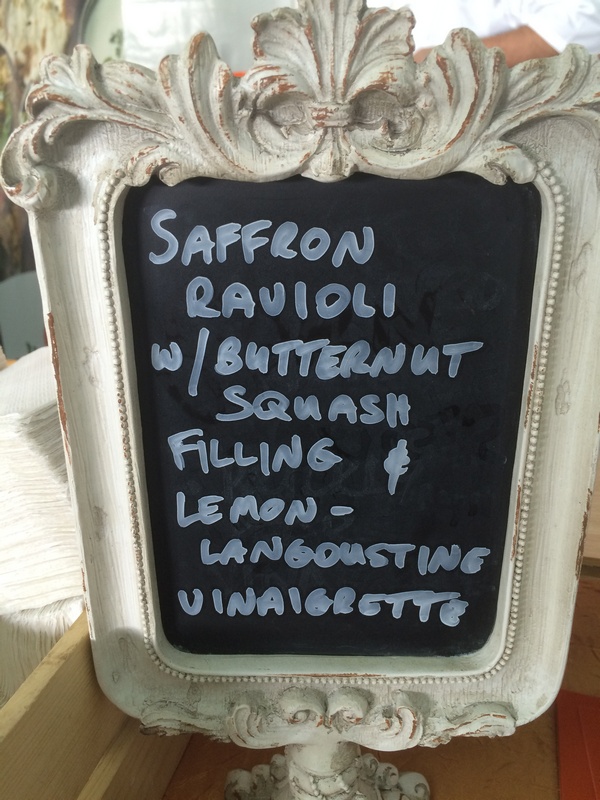 SAFFRON
RAVIOLI
W/BUTTERNUT
SQUASH
FILLING &
LEMON-
LANGOUSTINE
VINAIGRETTE